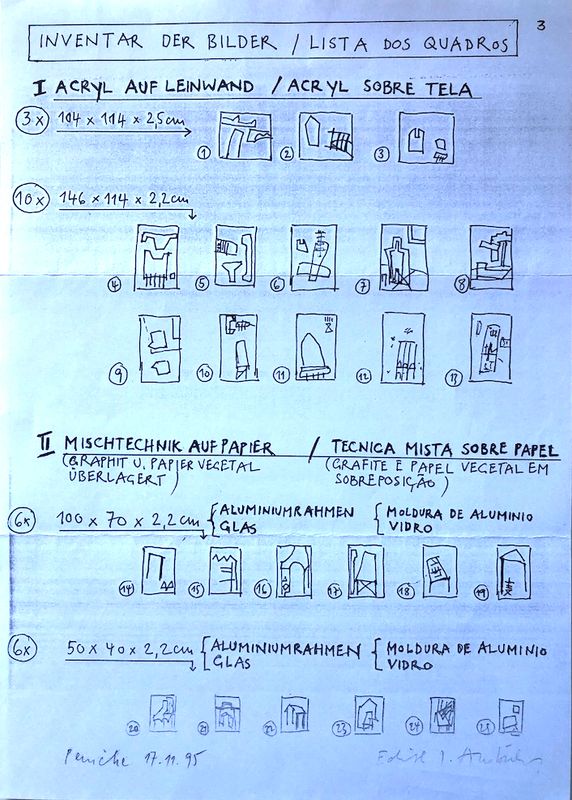 3
INVENTAR DER BILDER / LISTA DOS QUADROS
I ACRYL AUF LEINWAND / ACRYL SOBRE TELA
3x 114 x 114 x 2,5cm
1 2 3
10x 146 x 114 x 2,2cm
4 5 6 7 8
9 10 11 12 13
II MISCHTECHNIK AUF PAPIER / TECNICA MISTA SOBRE PAPEL
(GRAPHIT U. PAPIER VEGETAL (GRAFITE E PAPEL VEGETAL EM
ÜBERLAGERT) SOBREPOSIÇÃO)
6x 100 x 70 x 2,2cm { ALUMINIUMRAHMEN { MOLDURA DE ALUMINIO
GLAS VIDRO
14 15 16 17 18 19
6x 50 x 40 x 2,2cm { ALUMINIUMRAHMEN { MOLDURA DE ALUMINIO
GLAS VIDRO
20 21 22 23 24 25
Peniche 17.11.95